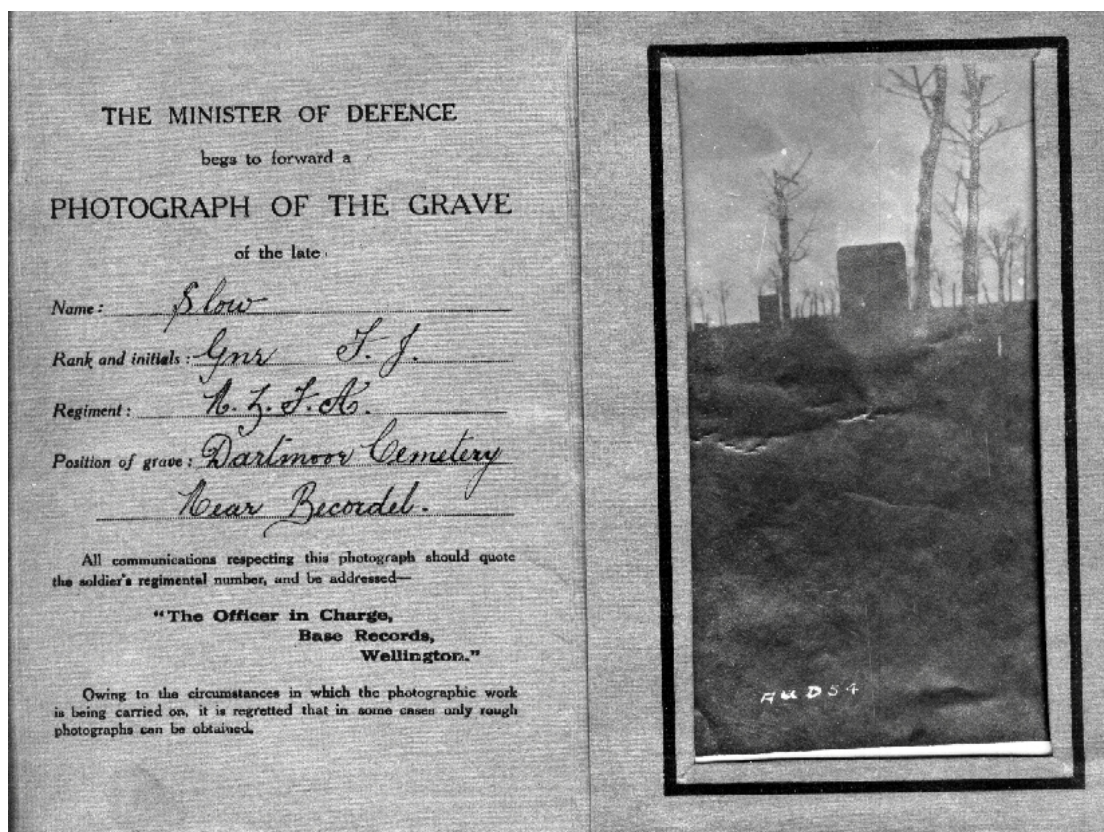 THE MINISTER OF DEFENCE
begs to forward a
PHOTOGRAPH OF THE GRAVE
of the late
Name: Slow
Rank and initials: Gnr F. J.
Regiment: N.Z.F.A.
Position of grave: Dartmoor Cemetery
Near Becordel.
All communications respecting this photograph should quote
the soldier's regimental number, and be addressed—
"The Officer in Charge,
Base Records,
Wellington."
Owing to the circumstances in which the photographic work
is being carried on, it is regretted that in some cases only rough
photographs can be obtained.
AUD54